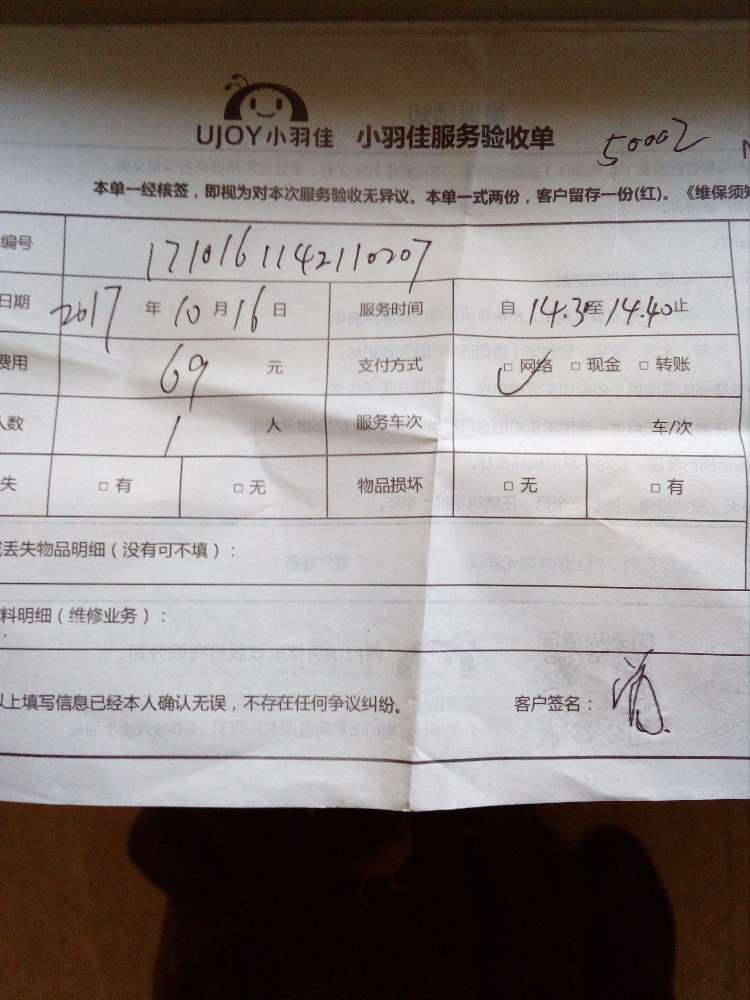 UJOY小羽佳 小羽佳服务验收单 50002
本单一经核签，即视为对本次服务验收无异议。本单一式两份，客户留存一份(红)。《维保须知
编号 1710161142110207
日期 2017 年 10 月 16 日 服务时间 自 14.30至 14.40止
费用 69 元 支付方式 □ 网络 □ 现金 □ 转账
人数 1 人 服务车次 车/次
失 □ 有 □ 无 物品损坏 □ 无 □ 有
丢失物品明细（没有可不填）：
料明细（维修业务）：
以上填写信息已经本人确认无误，不存在任何争议纠纷。 客户签名：